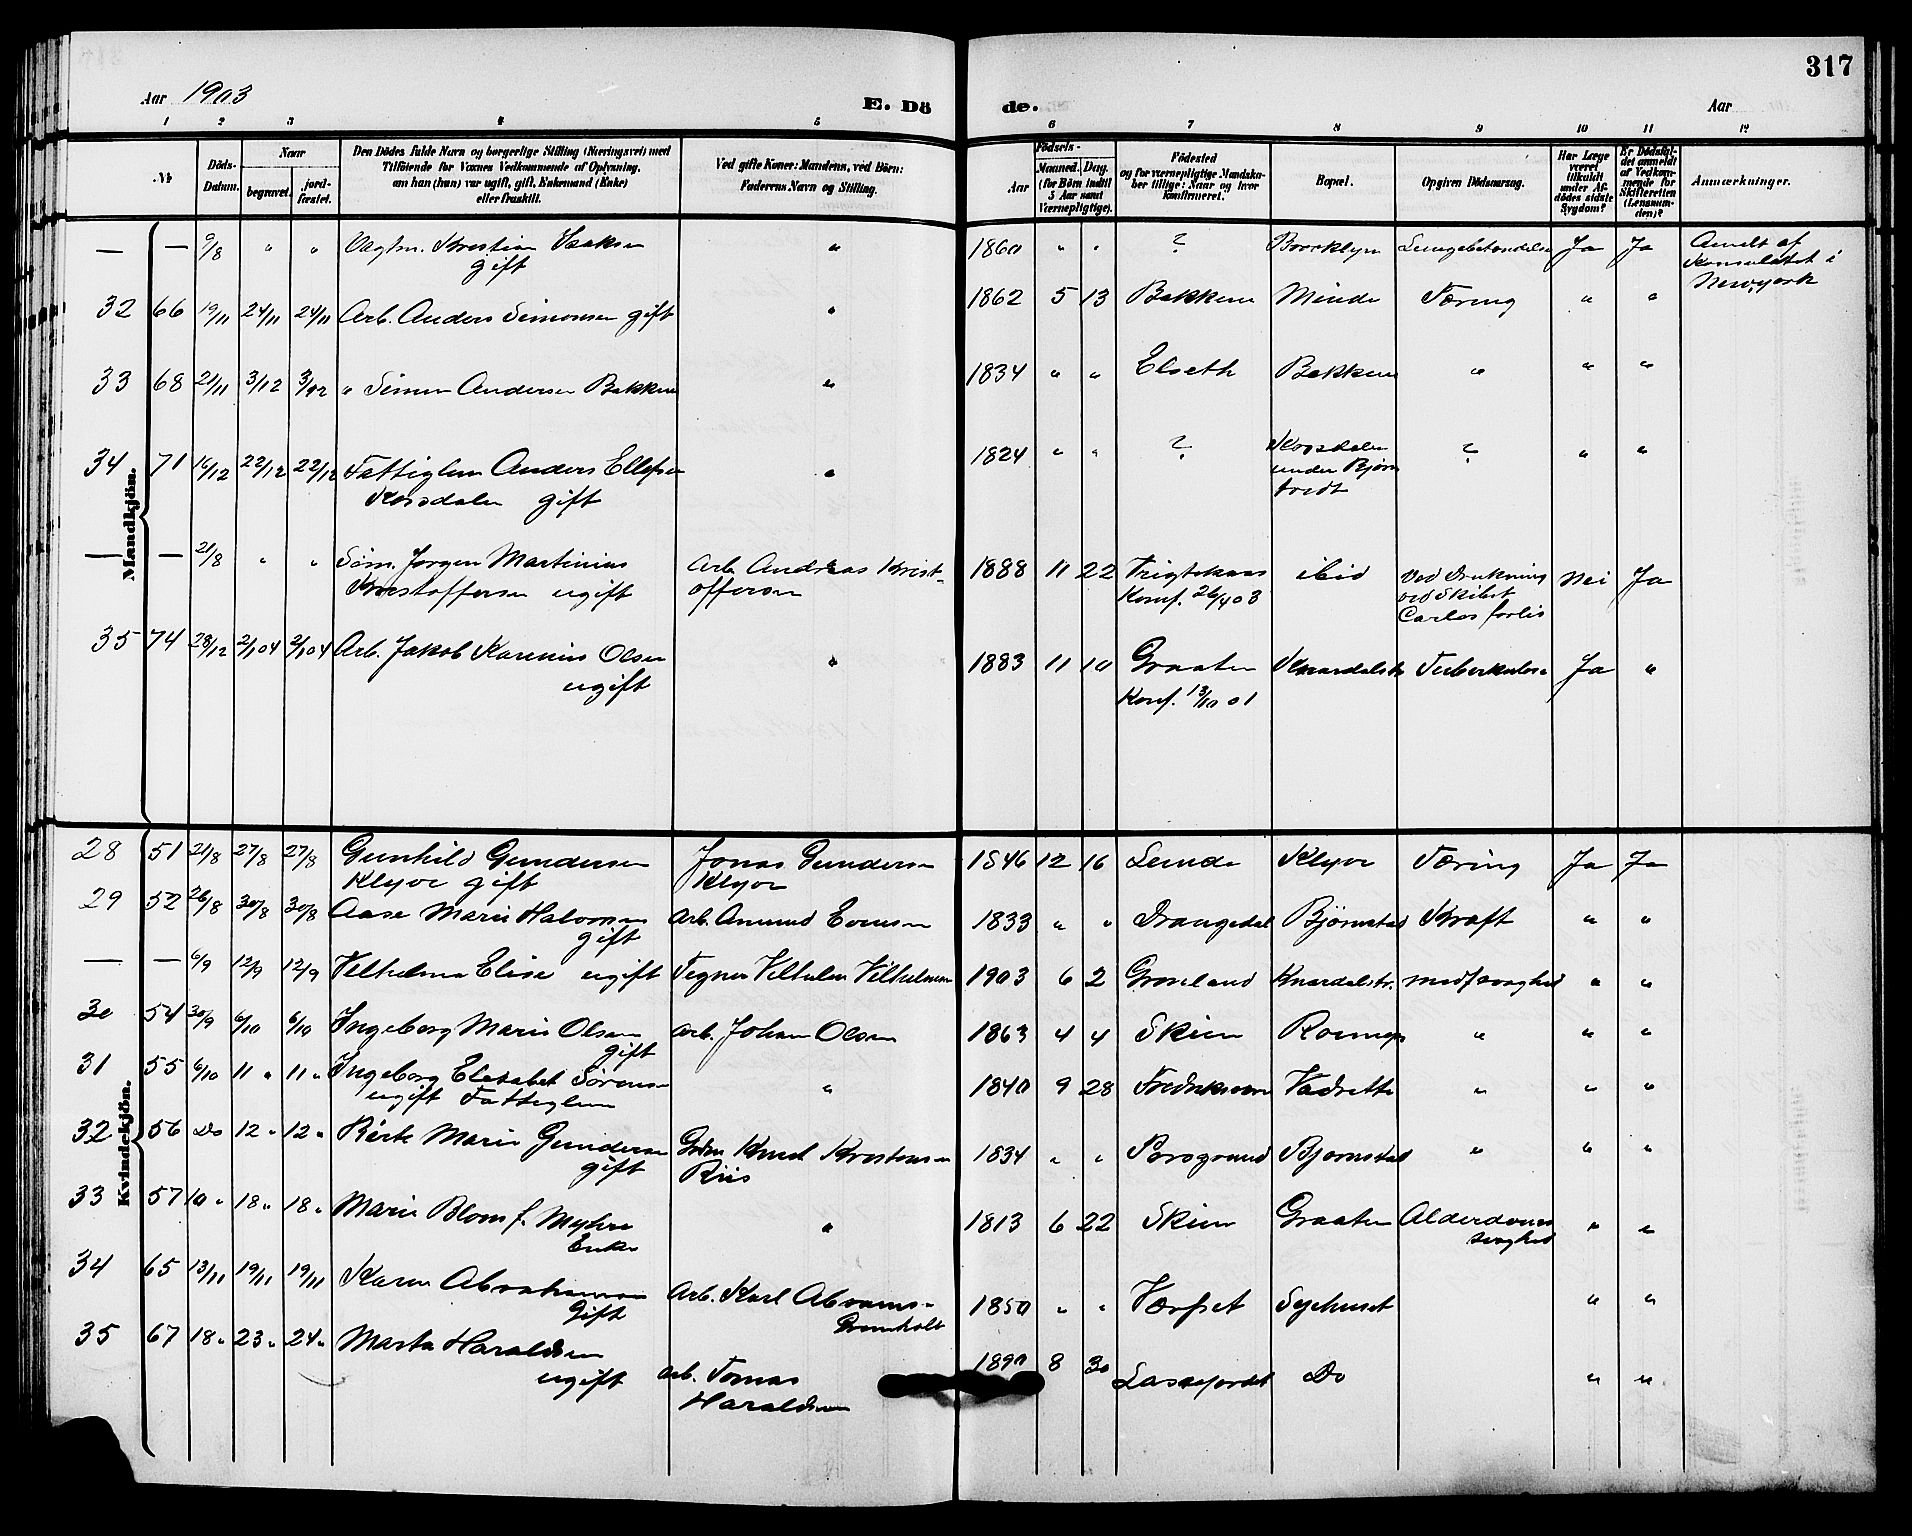 317
Aar 1903 E. Dö de. Aar
1 2 3 4 5 6 7 8 9 10 11 12
№ Döds-Datum. Naar begravet. jordfæstet. Den Dödes fulde Navn og borgerlige Stilling (Næringsvei) med Tilföiende for Voxnes Vedkommende af Oplysning, om han (hun) var ugift, gift, Enkemand (Enke) eller fraskilt. Ved gifte Koner: Mandens, ved Börn: Faderens Navn og Stilling.
Födsels- Aar Maaned. Dag. (for Börn indtil 5 Aar samt Værnepligtige). Födested og for værnepligtige Mandskaber tillige: Naar og hvor konfirmeret. Bopæl. Opgiven Dödsaarsag. Har Læge været tilkaldt under Afdödes sidste Sygdom? Er Dödsfaldet anmeldt af Vedkommende for Skifteretten (Lensmanden)? Anmærkninger.
Mandkjön.
— — 9/8 " " Kristian Isaksen " 1860 " " ? Boorklyn Lungebetændelse Ja Ja Anmelt af
gift Konsulatet i
Newyork
32 66 19/11 24/11 24/11 Arb. Anders Simonsen gift " 1862 5 13 Bakken Minde Tæring " "
33 68 21/11 3/12 3/12 " Simon Andersen Bakken " 1834 " " Elseth Bakken " " "
34 71 16/12 22/12 22/12 Fattiglem Anders Ellefsen " 1824 " " ? Korsdalen ? " "
Korsdalen gift under Bjørn
tvedt
— — 21/8 " " Søm. Jørgen Martinius Arb. Andreas Krist- 1888 11 22 Frigstekaas ibid Ved Drukning Nei Ja
Kristoffersen ugift offersen Konf. 26/4 03 ved Skibet
Carlos forlis
35 74 28/12 2/1 04 2/1 04 Arb. Jakob Karenius Olsen " 1883 11 10 Graaten Knardalstr Tuberkulose Ja "
ugift Konf. 13/10 01
Kvindekjön.
28 51 21/8 27/8 27/8 Gunhild Gundersen Jonas Gundersen 1846 12 16 Lunde Klyve Tæring Ja Ja
Klyve gift Klyve
29 52 26/8 30/8 30/8 Aase Marie Halvorsen Arb. Amund Evensen 1833 " " Drangedal Bjørnstad Kræft " "
gift
— — 6/9 12/9 12/9 Vilhelma Elise ugift Tegner Vilhelm Vilhelmsen 1903 6 2 Grøneland Knardalstr. medf svaghed " "
30 54 30/9 6/10 6/10 Ingeborg Marie Olsen Arb. Johan Olsen 1863 4 4 Skien " " "
gift
31 55 6/10 11 " 11 " Ingeborg Elisabet Sørensen " 1840 9 28 Fredriksværn Vadrette " " "
ugift Fattiglem
32 56 Do 12 " 12 " Marie Gundersen Knud Kristensen 1834 " " Porsgrund Bjørnstad " " "
gift Riis
33 57 10 " 18 " 18 " Marie Blom f. Myhre " 1813 6 22 Skien Graaten Alderdoms " "
Enke svaghed
34 65 13/11 19/11 19/11 Karen Abrahamsen Arb. Karl Abrams- 1850 " " Sygehuset " "
Gift Grønholt
35 67 18 " 23 " 24 " Marta Haraldsen Arb. Tomas 1890 8 30 Lassefjordet Do " "
ugift Haraldsen